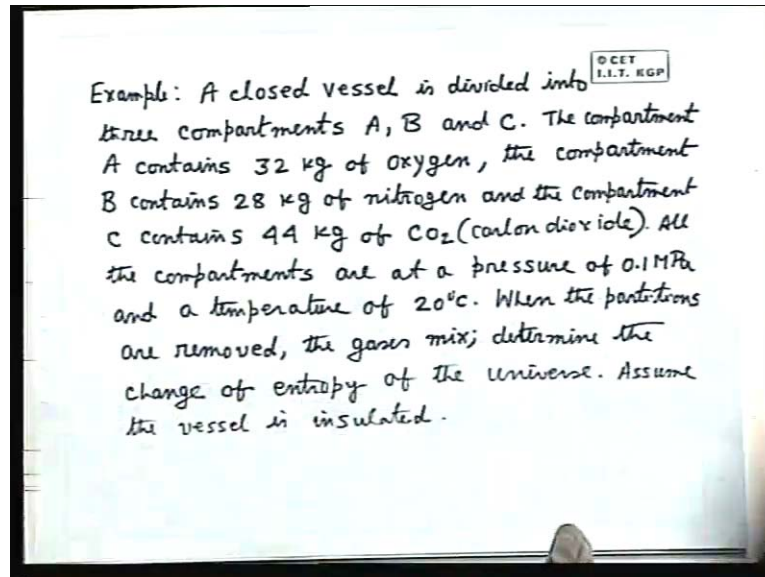 © CET
I.I.T. KGP
Example: A closed vessel is divided into
three compartments A, B and C. The compartment
A contains 32 kg of oxygen, the compartment
B contains 28 kg of nitrogen and the compartment
C contains 44 kg of CO₂ (carbon dioxide). All
the compartments are at a pressure of 0.1 MPa
and a temperature of 20°C. When the partitions
are removed, the gases mix; determine the
change of entropy of the universe. Assume
the vessel is insulated.